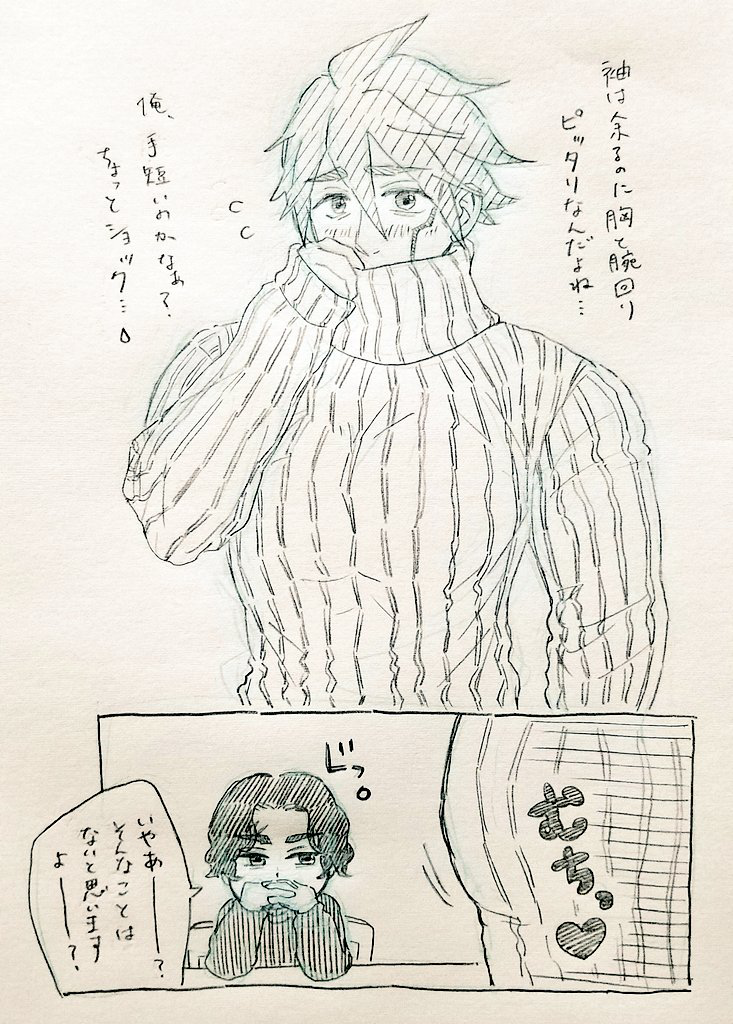 袖は余るのに胸と腕回り
ピッタリなんだよね…
俺、手短いのかなぁ?
ちょっとショック…
じっ。
むちっ♡
いやあーーー?
そんなことは
ないと思います
よーーー?